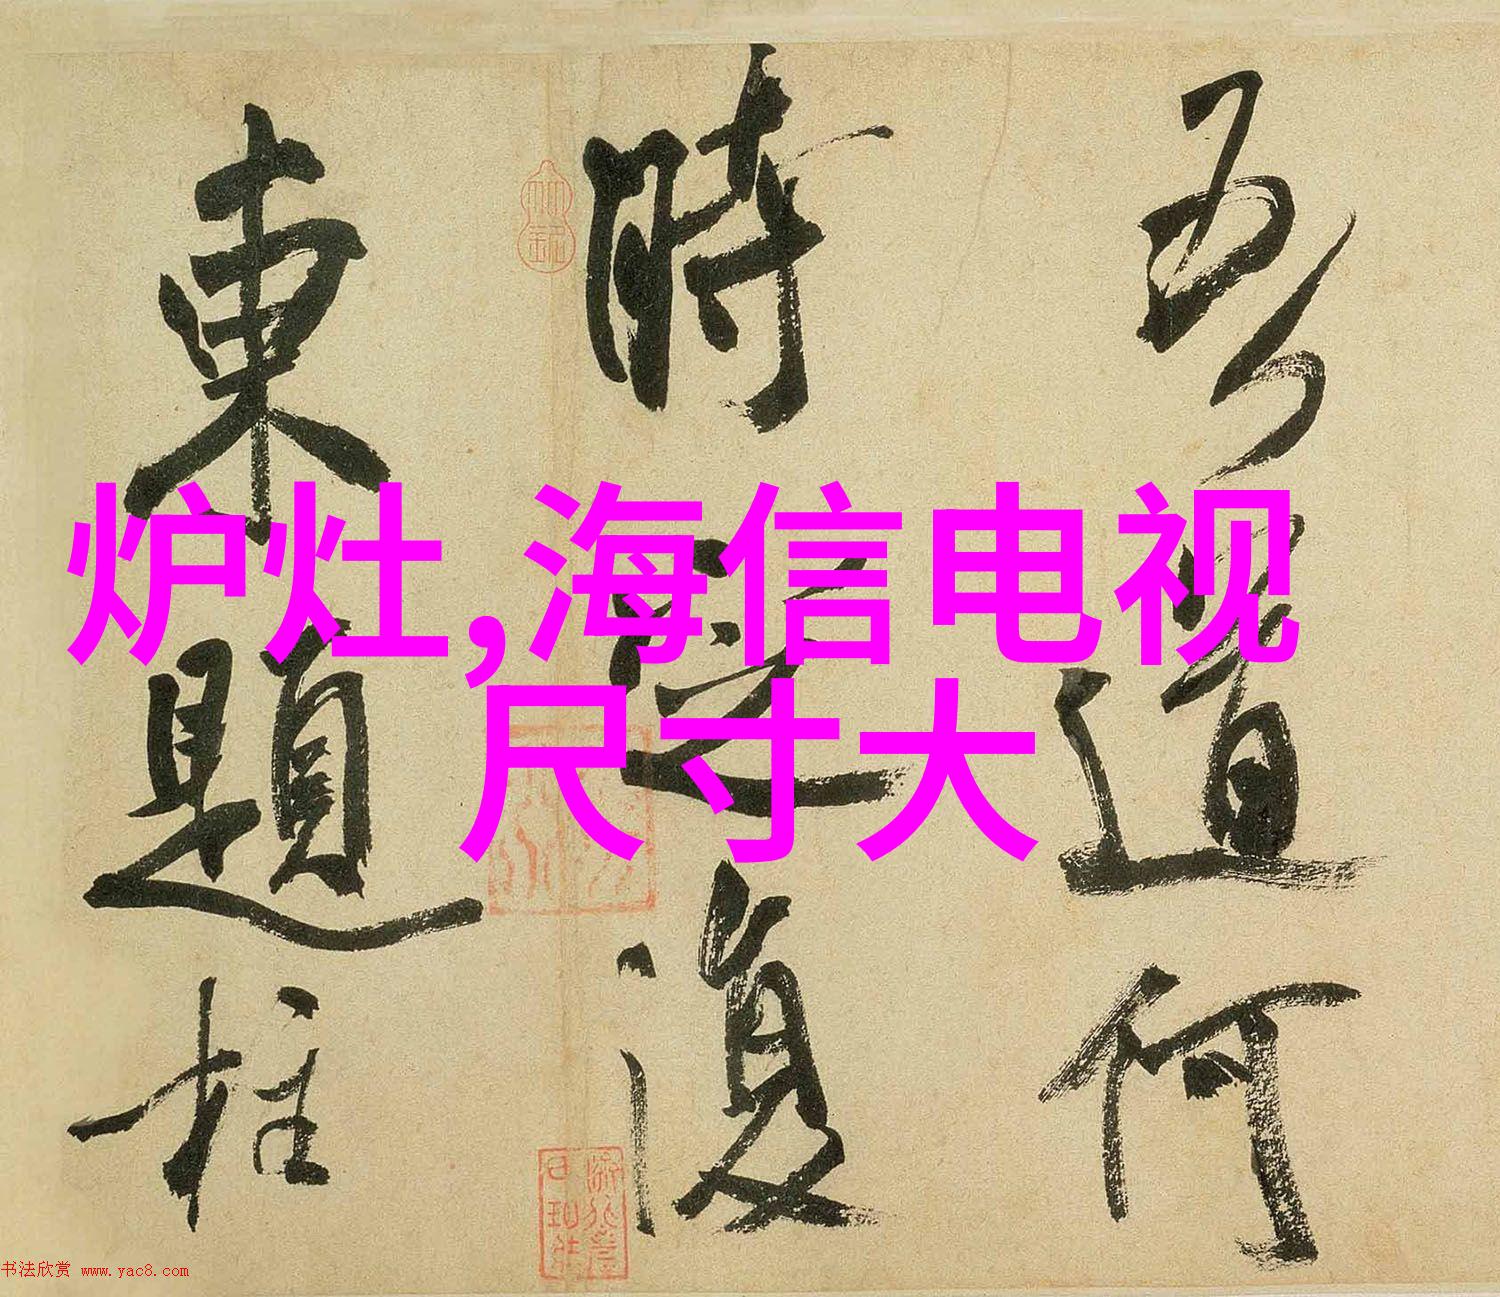 吾道何
時定復
東題柱
炉灶,海信电视
尺寸大
书法欣赏 www.yac8.com